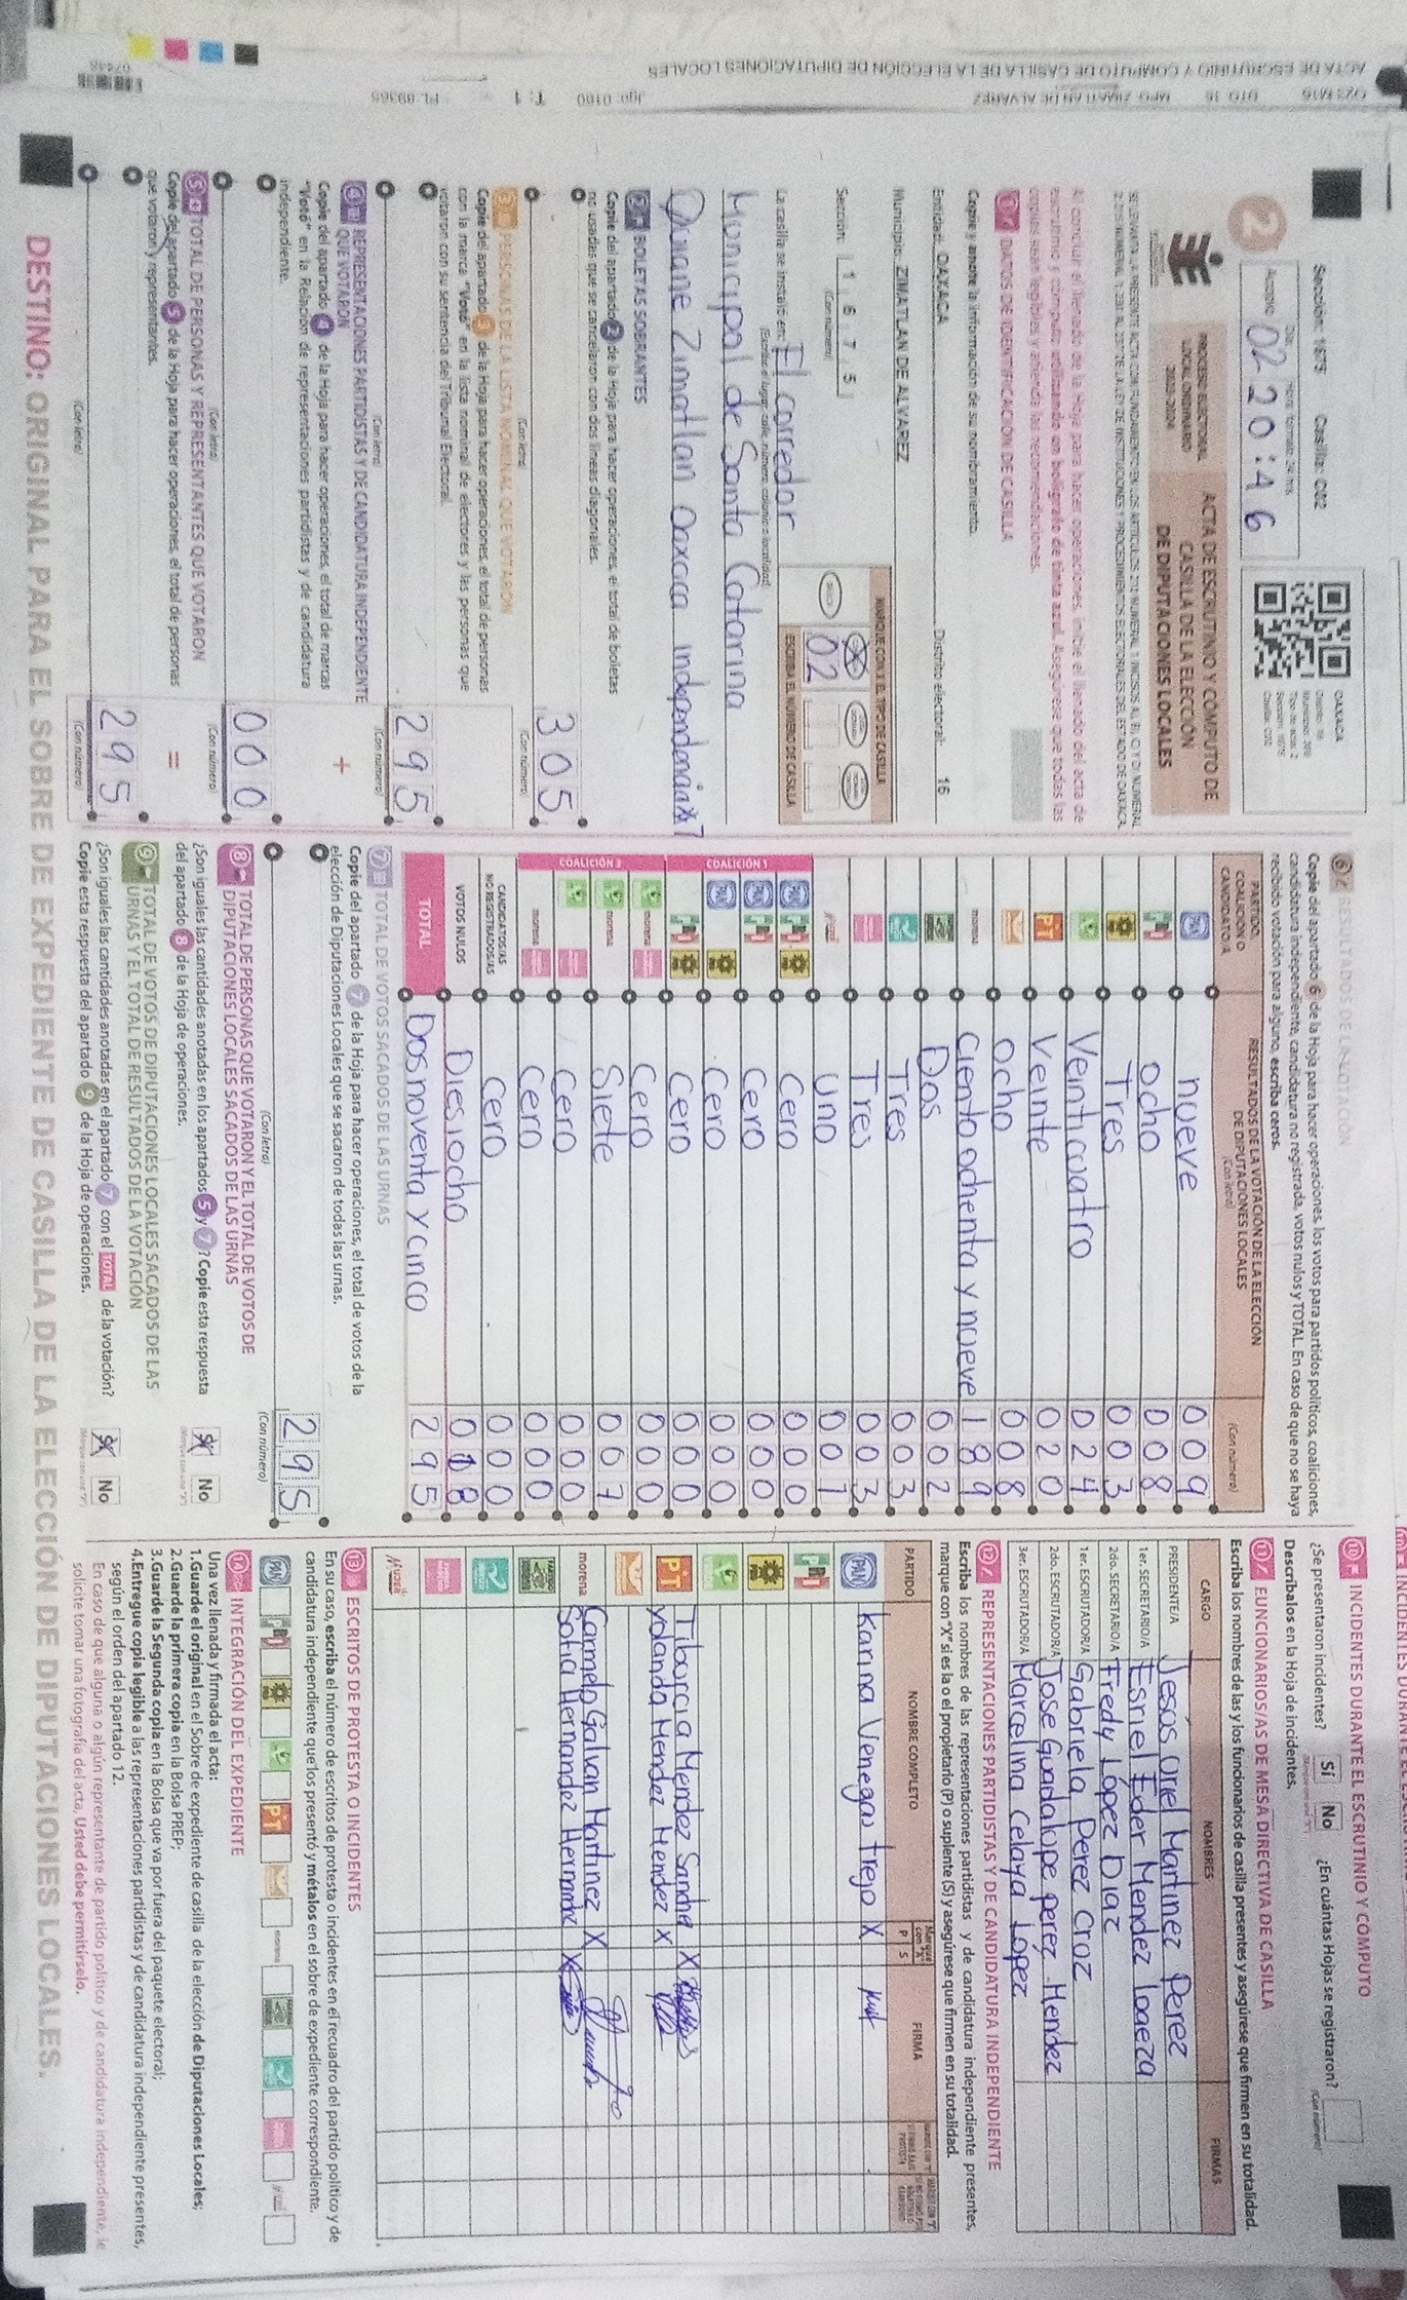 ACTA DE ESCRUTINIO Y CÓMPUTO DE CASILLA DE LA ELECCIÓN DE DIPUTACIONES LOCALES
Sección: 1675 Casilla: C02
2
Acopio 02 20:46
PROCESO ELECTORAL LOCAL ORDINARIO 2023-2024
ACTA DE ESCRUTINIO Y CÓMPUTO DE
CASILLA DE LA ELECCIÓN
DE DIPUTACIONES LOCALES
Al concluir el llenado de la Hoja para hacer operaciones, inicie el llenado del acta de
escrutinio y cómputo utilizando un bolígrafo de tinta azul. Asegúrese que todas las
copias sean legibles y atienda las recomendaciones.
1 DATOS DE IDENTIFICACIÓN DE CASILLA
Copie y anote la información de su nombramiento.
Entidad: OAXACA Distrito electoral: 16
Municipio: ZIMATLAN DE ALVAREZ
Sección: 1 6 7 5
(Con número)
MARQUE CON X EL TIPO DE CASILLA
02
ESCRIBA EL NÚMERO DE CASILLA
La casilla se instaló en: El corredor
(Escriba el lugar: calle, número, colonia o localidad)
Municipal de Santa Catarina
Quiane Zimatlan Oaxaca
2 BOLETAS SOBRANTES
Copie del apartado 2 de la Hoja para hacer operaciones, el total de boletas
no usadas que se cancelaron con dos líneas diagonales.
305
(Con letra) (Con número)
3 PERSONAS DE LA LISTA NOMINAL QUE VOTARON
Copie del apartado 3 de la Hoja para hacer operaciones, el total de personas
con la marca "Votó" en la lista nominal de electores y las personas que
votaron con su sentencia del Tribunal Electoral.
295
(Con letra) (Con número)
4 REPRESENTACIONES PARTIDISTAS Y DE CANDIDATURA INDEPENDIENTE
QUE VOTARON
+
Copie del apartado 4 de la Hoja para hacer operaciones, el total de marcas
"Votó" en la Relación de representaciones partidistas y de candidatura
independiente.
000
(Con letra) (Con número)
5 TOTAL DE PERSONAS Y REPRESENTANTES QUE VOTARON
=
Copie del apartado 5 de la Hoja para hacer operaciones, el total de personas
que votaron y representantes.
295
(Con letra) (Con número)
6 RESULTADOS DE LA VOTACIÓN
Copie del apartado 6 de la Hoja para hacer operaciones, los votos para partidos políticos, coaliciones,
candidatura independiente, candidatura no registrada, votos nulos y TOTAL. En caso de que no se haya
recibido votación para alguno, escriba ceros.
PARTIDO, COALICIÓN O CANDIDATO/A
RESULTADOS DE LA VOTACIÓN DE LA ELECCIÓN
DE DIPUTACIONES LOCALES
(Con letra) (Con número)
PAN nueve 009
PRI ocho 008
PRD Tres 003
Veinticuatro 024
PT Veinte 020
ocho 008
morena Ciento ochenta y nueve 189
Dos 002
Tres 003
Tres 003
Uno 001
COALICIÓN 1
PAN PRI PRD Cero 000
PAN PRI Cero 000
PAN PRD Cero 000
PRI PRD Cero 000
COALICIÓN 2
morena Cero 000
morena Siete 007
Cero 000
morena Cero 000
CANDIDATOS/AS
NO REGISTRADOS/AS Cero 000
VOTOS NULOS Diesiocho 018
TOTAL Dos noventa y cinco 295
7 TOTAL DE VOTOS SACADOS DE LAS URNAS
Copie del apartado 7 de la Hoja para hacer operaciones, el total de votos de la
elección de Diputaciones Locales que se sacaron de todas las urnas.
295
(Con letra) (Con número)
8 TOTAL DE PERSONAS QUE VOTARON Y EL TOTAL DE VOTOS DE
DIPUTACIONES LOCALES SACADOS DE LAS URNAS
¿Son iguales las cantidades anotadas en los apartados 5 y 7? Copie esta respuesta
del apartado 8 de la Hoja de operaciones.
No
9 TOTAL DE VOTOS DE DIPUTACIONES LOCALES SACADOS DE LAS
URNAS Y EL TOTAL DE RESULTADOS DE LA VOTACIÓN
¿Son iguales las cantidades anotadas en el apartado 7 con el TOTAL de la votación?
Copie esta respuesta del apartado 9 de la Hoja de operaciones.
No
10 INCIDENTES DURANTE EL ESCRUTINIO Y CÓMPUTO
¿Se presentaron incidentes? Sí No ¿En cuántas Hojas se registraron?
(Con número)
Descríbalos en la Hoja de incidentes.
11 FUNCIONARIOS/AS DE MESA DIRECTIVA DE CASILLA
Escriba los nombres de las y los funcionarios de casilla presentes y asegúrese que firmen en su totalidad.
CARGO NOMBRES FIRMAS
PRESIDENTE/A Jesús Oriel Martinez Perez
1er. SECRETARIO/A Esriel Eder Mendez loaeza
2do. SECRETARIO/A Fredy López Diaz
1er. ESCRUTADOR/A Gabriela Perez Cruz
2do. ESCRUTADOR/A Jose Guadalupe perez Mendez
3er. ESCRUTADOR/A Marcelina Celaya López
12 REPRESENTACIONES PARTIDISTAS Y DE CANDIDATURA INDEPENDIENTE
Escriba los nombres de las representaciones partidistas y de candidatura independiente presentes,
marque con "X" si es la o el propietario (P) o suplente (S) y asegúrese que firmen en su totalidad.
PARTIDO NOMBRE COMPLETO P S FIRMA
PAN Karina Venegas trejo X
PRI
PRD
PT Tiburcia Mendez Sanche X
Yolanda Mendez Mendez X
morena Carmelo Galvan Martinez X
Sofia Hernandez Hernandez X
13 ESCRITOS DE PROTESTA O INCIDENTES
En su caso, escriba el número de escritos de protesta o incidentes en el recuadro del partido político y de
candidatura independiente que los presentó y métalos en el sobre de expediente correspondiente.
14 INTEGRACIÓN DEL EXPEDIENTE
Una vez llenada y firmada el acta:
1.Guarde el original en el Sobre de expediente de casilla de la elección de Diputaciones Locales;
2.Guarde la primera copia en la Bolsa PREP;
3.Guarde la Segunda copia en la Bolsa que va por fuera del paquete electoral;
4.Entregue copia legible a las representaciones partidistas y de candidatura independiente presentes,
según el orden del apartado 12.
En caso de que alguna o algún representante de partido político y de candidatura independiente, le
solicite tomar una fotografía del acta, Usted debe permitírselo.
DESTINO: ORIGINAL PARA EL SOBRE DE EXPEDIENTE DE CASILLA DE LA ELECCIÓN DE DIPUTACIONES LOCALES.